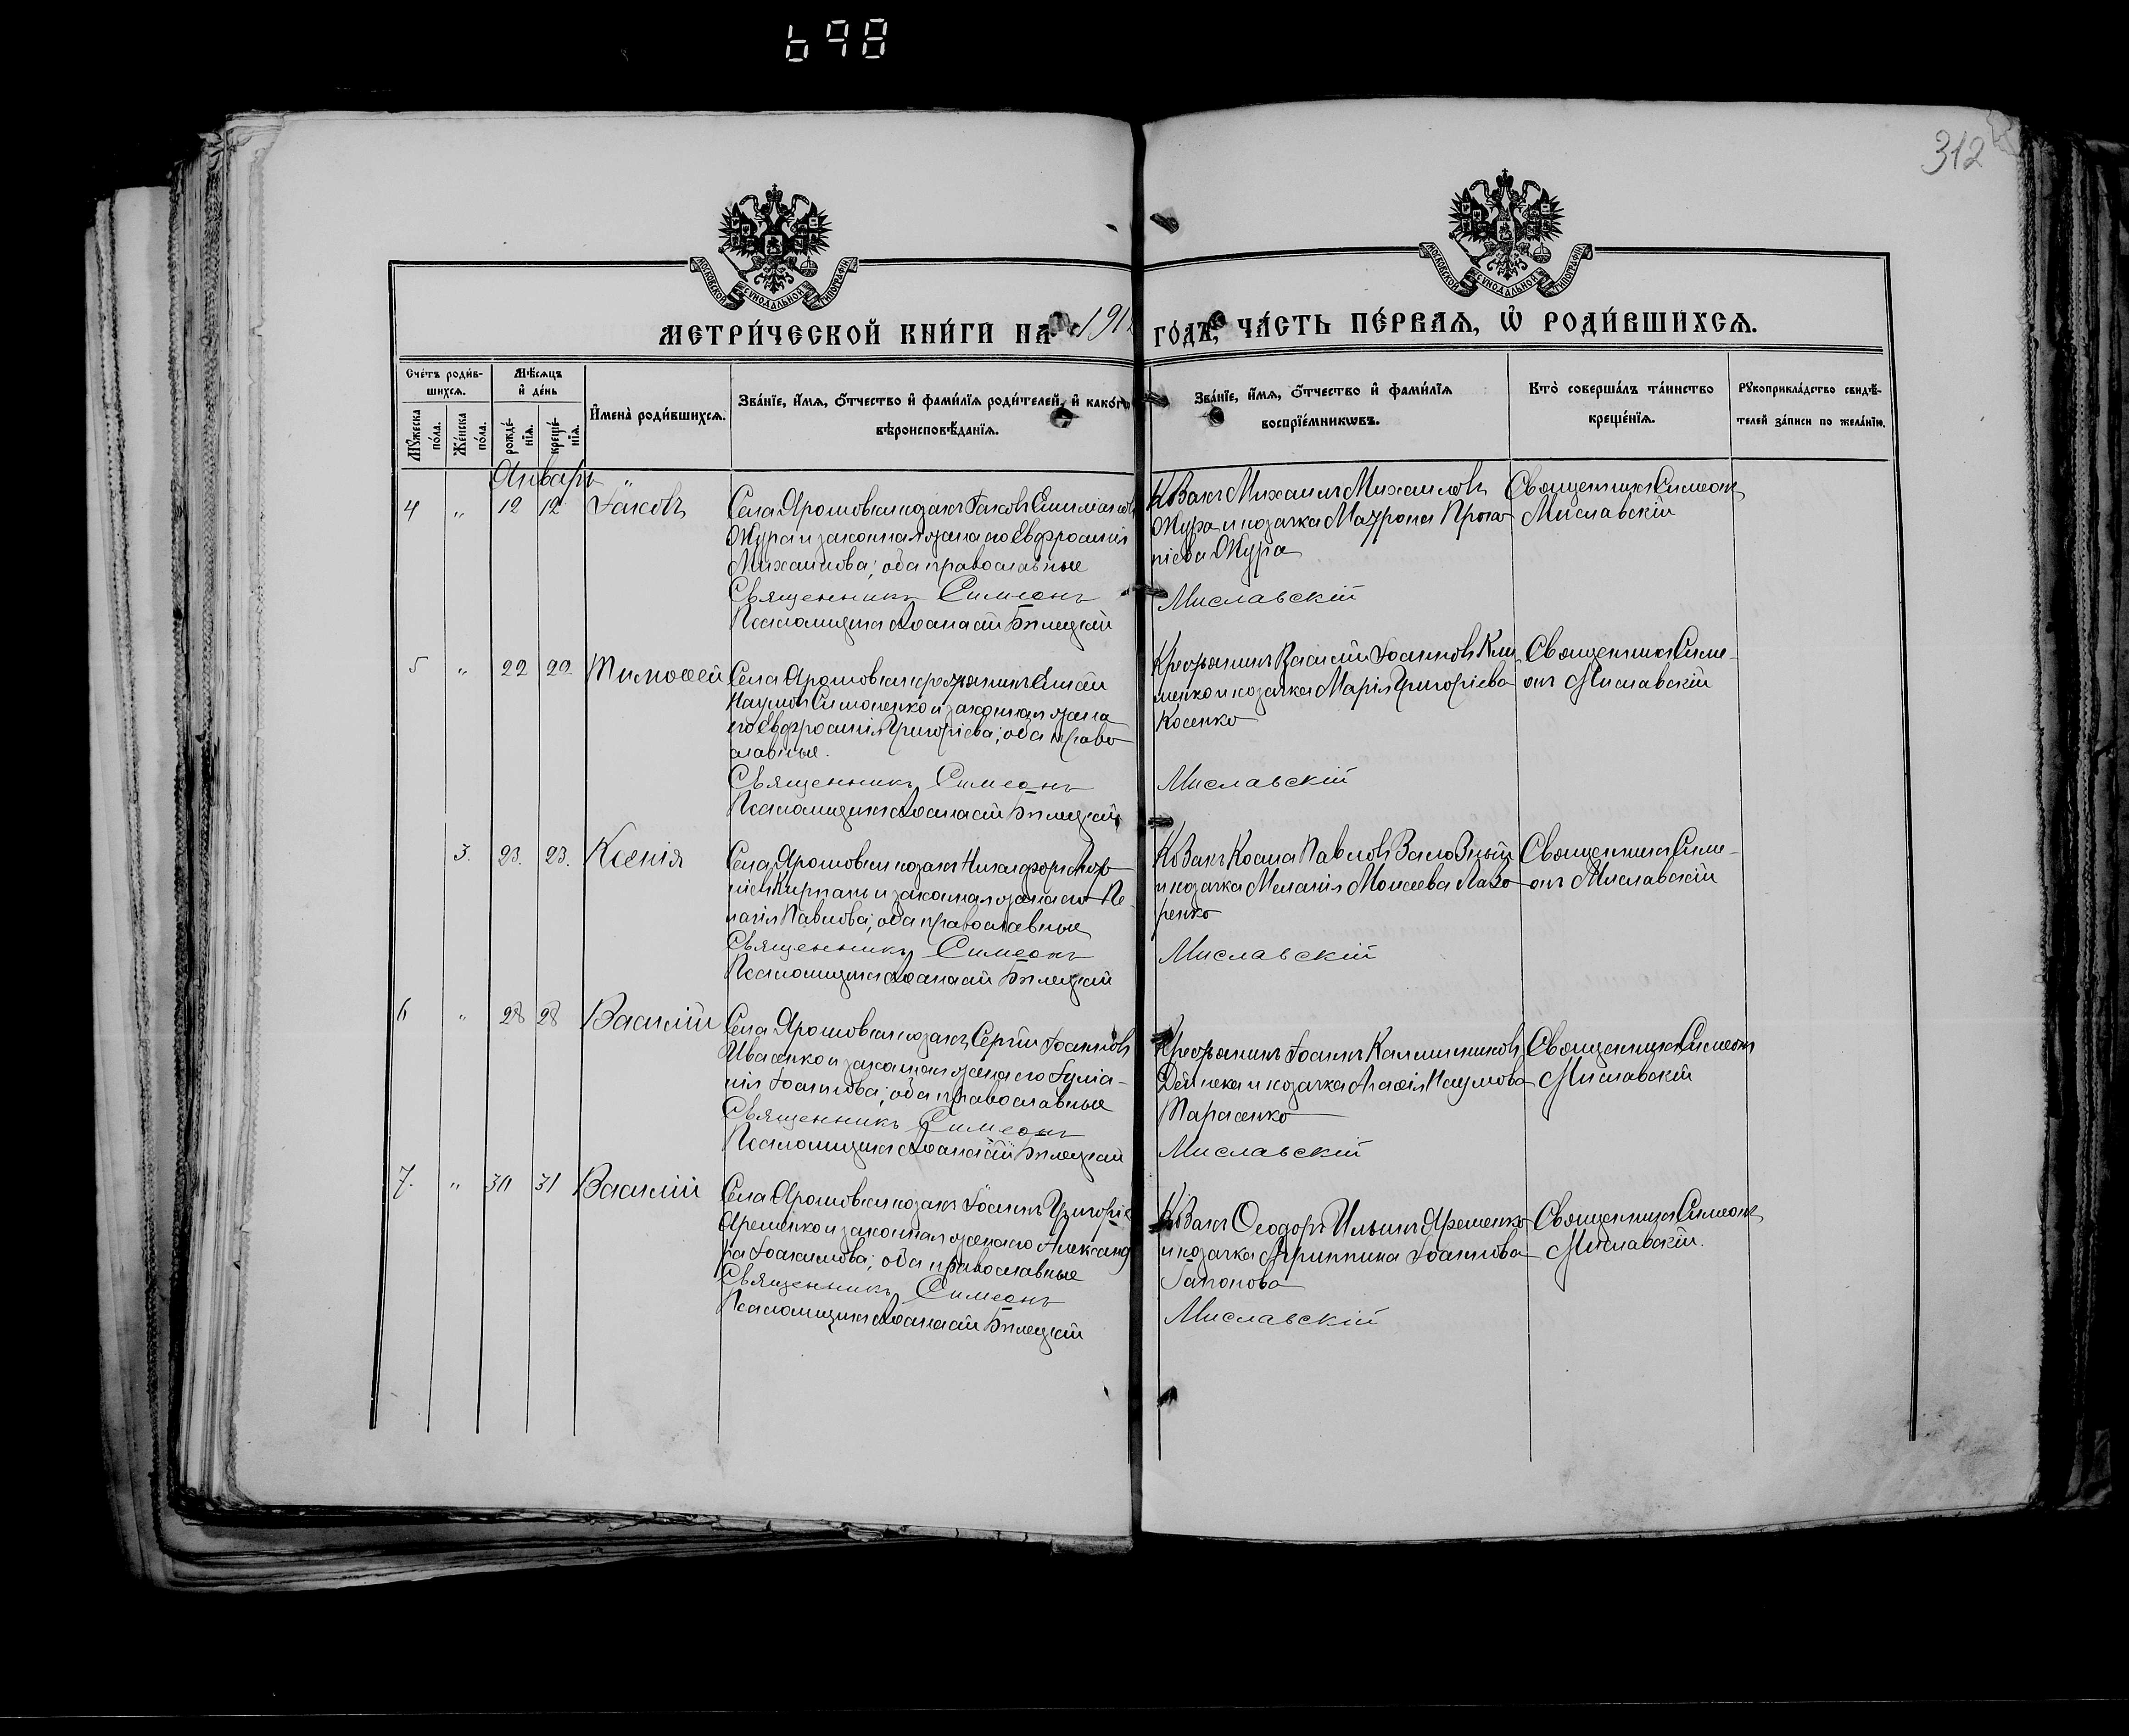 698
312
МОСКОВСКОЙ СѴНОДАЛЬНОЙ ТИПОГРАФІИ
МОСКОВСКОЙ СѴНОДАЛЬНОЙ ТИПОГРАФІИ
МЕТРИ́ЧЕСКОЙ КНИ́ГИ НА 191
ГО́ДЪ, ЧА́СТЬ ПЕ́РВАЯ, Ѡ РОДИ́ВШИХСЯ.
Сче́тъ роди́в-
шихся.
Мѣ́сяцъ
и де́нь
Мꙋ́жеска по́ла.
Же́нска по́ла.
рожде́-
нїя.
креще́-
нїя.
И҆мена̀ роди́вшихся.
Зва́нїе, и҆́мя, ѻ҆́тчество и҆ фами́лїя роди́телей, и҆ како́гѡ
вѣроисповѣ́данїя.
Зва́нїе, и҆́мя, ѻ҆́тчество и҆ фами́лїя
воспрїе́мникѡвъ.
Кто̀ соверша́лъ та́инство
креще́нїя.
Рꙋкоприкла́дство свидѣ́-
телей за́писи по жела́нїю.
Январь
4 " 12 12 Іаковъ
Села Ярошовки козакъ Іаковъ
Жура и законная жена его Евфросинія
Михаилова; оба православные
Священникъ Симеонъ
Псаломщикъ Аѳанасій Бѣлецкій
Козакъ Михаилъ Михаиловъ
Жура и козачка Матрона Проко-
піева Жура
Миславскій
Священникъ Симеонъ
Миславскій
5 " 22 22 Тимоѳей
Села Ярошовки крестьянинъ
Наумовъ Симоненко и законная жена
его Евфросинія Григоріева; оба право-
славные.
Священникъ Симеонъ
Псаломщикъ Аѳанасій Бѣлецкій
Крестьянинъ Василій Іоанновъ Кли-
менко и козачка Марія Григоріева
Косенко
Миславскій
Священникъ Симе-
онъ Миславскій
3. 23. 23. Ксенія
Села Ярошовки козакъ Никифоръ
и законная жена его Пе-
лагія Павлова; оба православные
Священникъ Симеонъ
Псаломщикъ Аѳанасій Бѣлецкій
Козакъ Косма Павловъ
и козачка Меланія Моисеева Лазо-
ренко
Миславскій
Священникъ Симе-
онъ Миславскій
6 " 28 28 Василій
Села Ярошовки козакъ Сергій Іоанновъ
Ивасенко и законная жена его Іуліа-
нія Іоаннова; оба православные
Священникъ Симеонъ
Псаломщикъ Аѳанасій Бѣлецкій
Крестьянинъ Іоаннъ Каллиниковъ
Дейнека и козачка Агаѳія Наумова
Тарасенко
Миславскій
Священникъ Симеонъ
Миславскій
7. " 30 31 Василій
Села Ярошовки козакъ Іоаннъ Григоріе
Яременко и законная жена его Александ
ра Іоакимова; оба православные
Священникъ Симеонъ
Псаломщикъ Аѳанасій Бѣлецкій
Козакъ Ѳеодоръ Ильинъ Яременко
и козачка Агриппина Іоаннова
Гапонова
Миславскій
Священникъ Симеонъ
Миславскій.